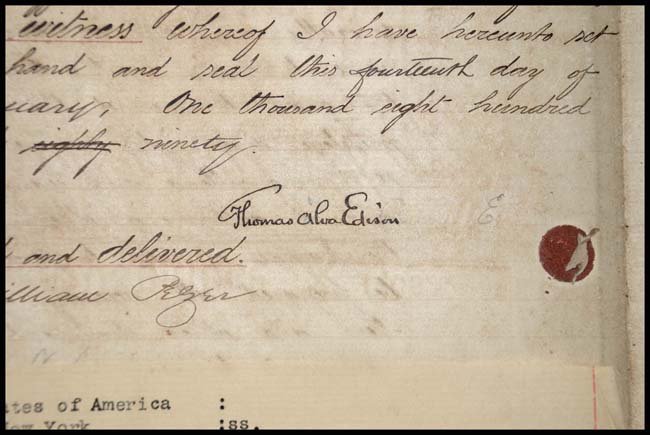 witness whereof I have hereunto set
hand and seal this fourteenth day of
uary, One thousand eight hundred
eighty ninety.
Thomas Alva Edison
E
and delivered.
illiam
ates of America :
ew York :ss.